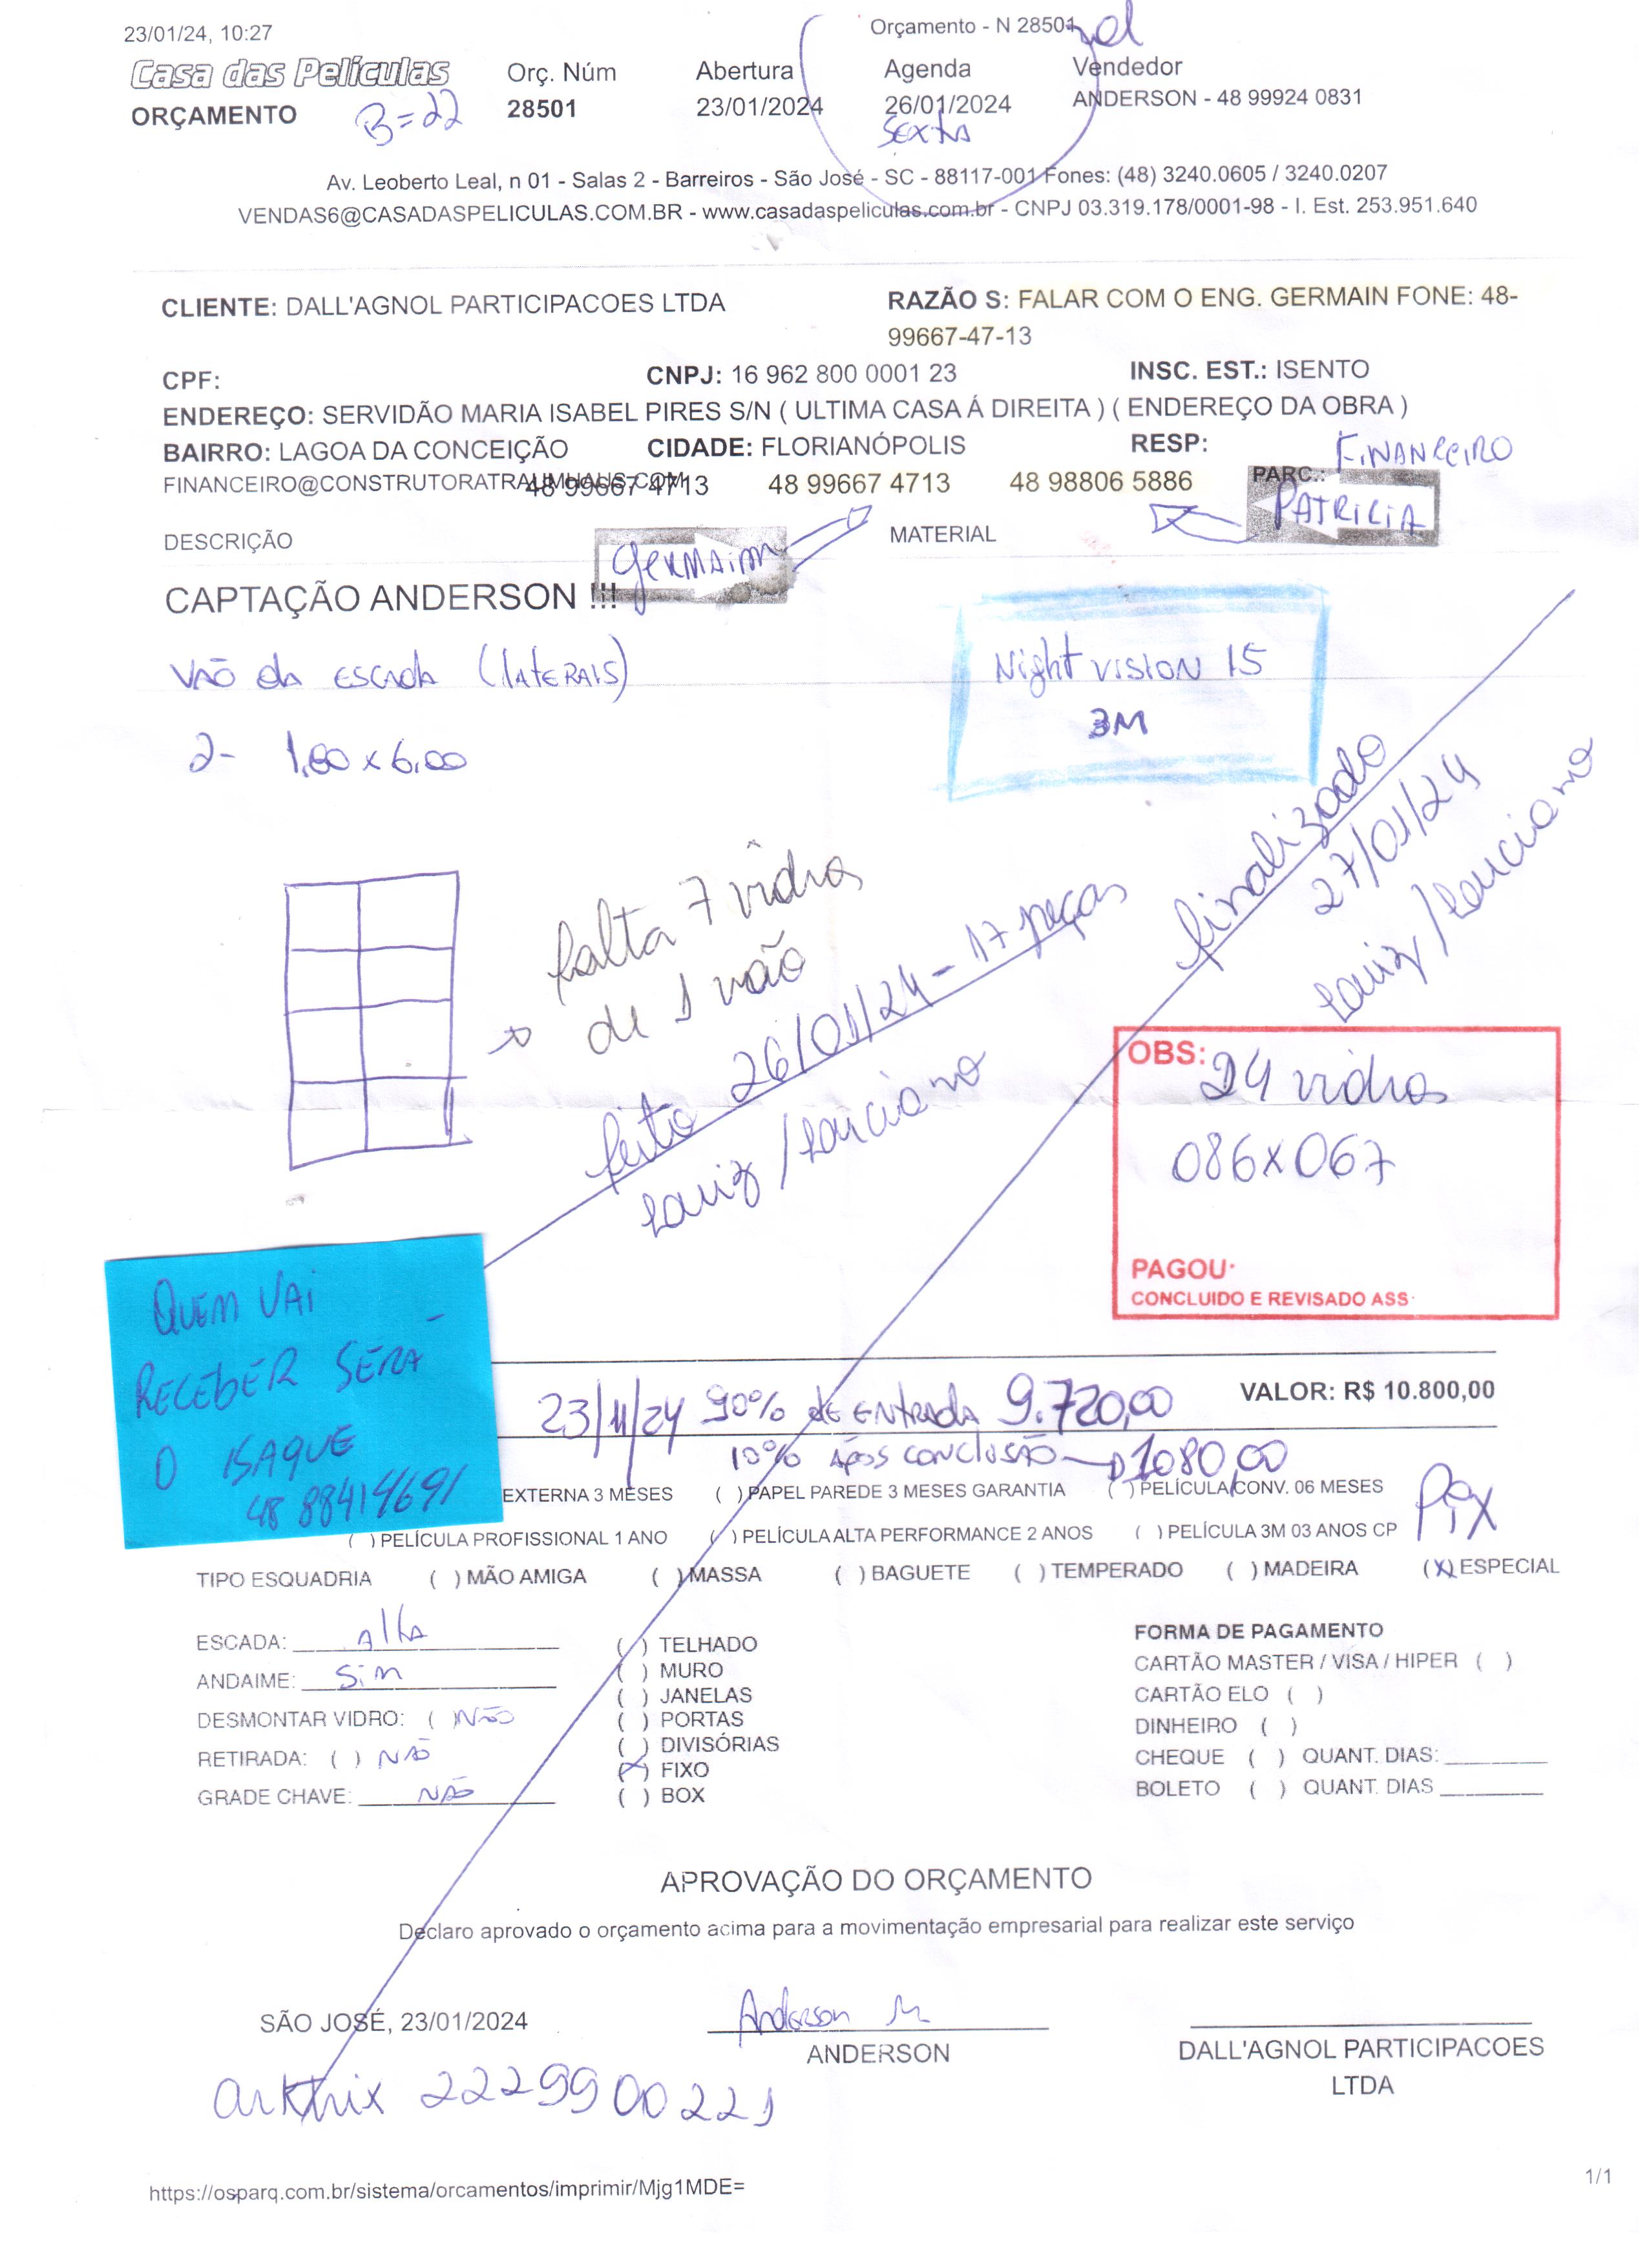 23/01/24, 10:27
Orçamento - N 28501
Casa das Películas
Orç. Núm
Abertura
Agenda
Vendedor
ORÇAMENTO
B=22
28501
23/01/2024
26/01/2024
ANDERSON - 48 99924 0831
Sexta
Av. Leoberto Leal, n 01 - Salas 2 - Barreiros - São José - SC - 88117-001 Fones: (48) 3240.0605 / 3240.0207
VENDAS6@CASADASPELICULAS.COM.BR - www.casadaspeliculas.com.br - CNPJ 03.319.178/0001-98 - I. Est. 253.951.640
CLIENTE: DALL'AGNOL PARTICIPACOES LTDA
RAZÃO S: FALAR COM O ENG. GERMAIN FONE: 48-
99667-47-13
CPF:
CNPJ: 16 962 800 0001 23
INSC. EST.: ISENTO
ENDEREÇO: SERVIDÃO MARIA ISABEL PIRES S/N ( ULTIMA CASA Á DIREITA ) ( ENDEREÇO DA OBRA )
BAIRRO: LAGOA DA CONCEIÇÃO
CIDADE: FLORIANÓPOLIS
RESP:
FINANCEIRO
FINANCEIRO@CONSTRUTORATRAUMHAUS.COM
48 99667 4713
48 99667 4713
48 98806 5886
PARC.:
PATRICIA
DESCRIÇÃO
germaim
MATERIAL
CAPTAÇÃO ANDERSON !!!
Vão da escada (laterais)
Night vision 15
3M
2- 1,80 x 6,00
falta 7 vidros
de 1 vão
feito 26/01/24 - 17 peças
Luiz / Luciano
finalizado
27/01/24
Luiz / Luciano
OBS: 24 vidros
086x067
PAGOU:
CONCLUIDO E REVISADO ASS:
Quem vai
receber será
o Isaque
48 88414691
23/11/24 90% de entrada 9.720,00
VALOR: R$ 10.800,00
10% após conclusão 1080,00
EXTERNA 3 MESES
( ) PAPEL PAREDE 3 MESES GARANTIA
( ) PELÍCULA CONV. 06 MESES
Pix
( ) PELÍCULA PROFISSIONAL 1 ANO
( ) PELÍCULA ALTA PERFORMANCE 2 ANOS
( ) PELÍCULA 3M 03 ANOS CP
TIPO ESQUADRIA
( ) MÃO AMIGA
( ) MASSA
( ) BAGUETE
( ) TEMPERADO
( ) MADEIRA
(X) ESPECIAL
ESCADA: Alta
ANDAIME: Sim
DESMONTAR VIDRO: ( ) Não
RETIRADA: ( ) Não
GRADE CHAVE: Não
( ) TELHADO
( ) MURO
( ) JANELAS
( ) PORTAS
( ) DIVISÓRIAS
(X) FIXO
( ) BOX
FORMA DE PAGAMENTO
CARTÃO MASTER / VISA / HIPER ( )
CARTÃO ELO ( )
DINHEIRO ( )
CHEQUE ( ) QUANT. DIAS:
BOLETO ( ) QUANT. DIAS
APROVAÇÃO DO ORÇAMENTO
Declaro aprovado o orçamento acima para a movimentação empresarial para realizar este serviço
SÃO JOSÉ, 23/01/2024
Anderson
ANDERSON
DALL'AGNOL PARTICIPACOES
LTDA
2229900221
https://osparq.com.br/sistema/orcamentos/imprimir/Mjg1MDE=
1/1